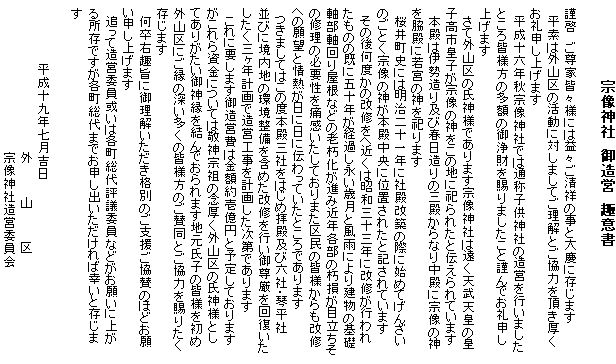 宗像神社　御造営　趣意書
謹啓　ご尊家皆々様には益々ご清祥の事と大慶に存じます
平素は外山区の活動に対しましてご理解とご協力を頂き厚く
お礼申し上げます
平成十六年秋宗像神社では通称子供神社の造営を行いました
ところ皆様方の多額の御浄財を賜りましたこと謹んでお礼申し
上げます
さて外山区の氏神様であります宗像神社は遠く天武天皇の皇
子高市皇子が宗像の神をこの地に祀られたと伝えられています
本殿は伊勢造り及び春日造りの三殿からなり中殿に宗像の神
を脇殿に若宮の神を祀ります
桜井町史には明治二十一年に社殿改築の際に始めてげんざい
のごとく宗像の神が本殿中央に位置されたと記されています
その後何度かの改修をへ近くは昭和三十二年に改修が行われ
たものの既に五十年が経過し永い歳月と風雨により建物の基礎
軸部軸回り屋根などの老朽化が進み近年各部の朽損が目立ちそ
の修理の必要性を痛感いたしておりまた区民の皆様からも改修
への願望と情熱が日に日に伝わっていたところであります
つきましてはこの度本殿三社をはじめ拝殿及び六社・琴平社
並びに境内地の環境整備を含めた改修を行い御尊厳を回復いた
したく三ヶ年計画で造営工事を計画した次第であります
これに要します御造営費は金額約壱億円と予定しております
がこれら資金については敬神崇祖の念厚く外山区の氏神様とし
てありがたい御神縁を結んでおられます地元氏子の皆様を初め
外山区にご縁の深い多くの皆様方のご賛同とご協力を賜りたく
存じます
何卒右趣旨に御理解いただき格別のご支援ご協賛のほどお願
い申し上げます
追って造営委員或いは各町総代評議委員などがお願いに上が
る所存ですが各町総代までお申し出いただければ幸いと存じま
す
平成十九年七月吉日
外　山　区
宗像神社造営委員会